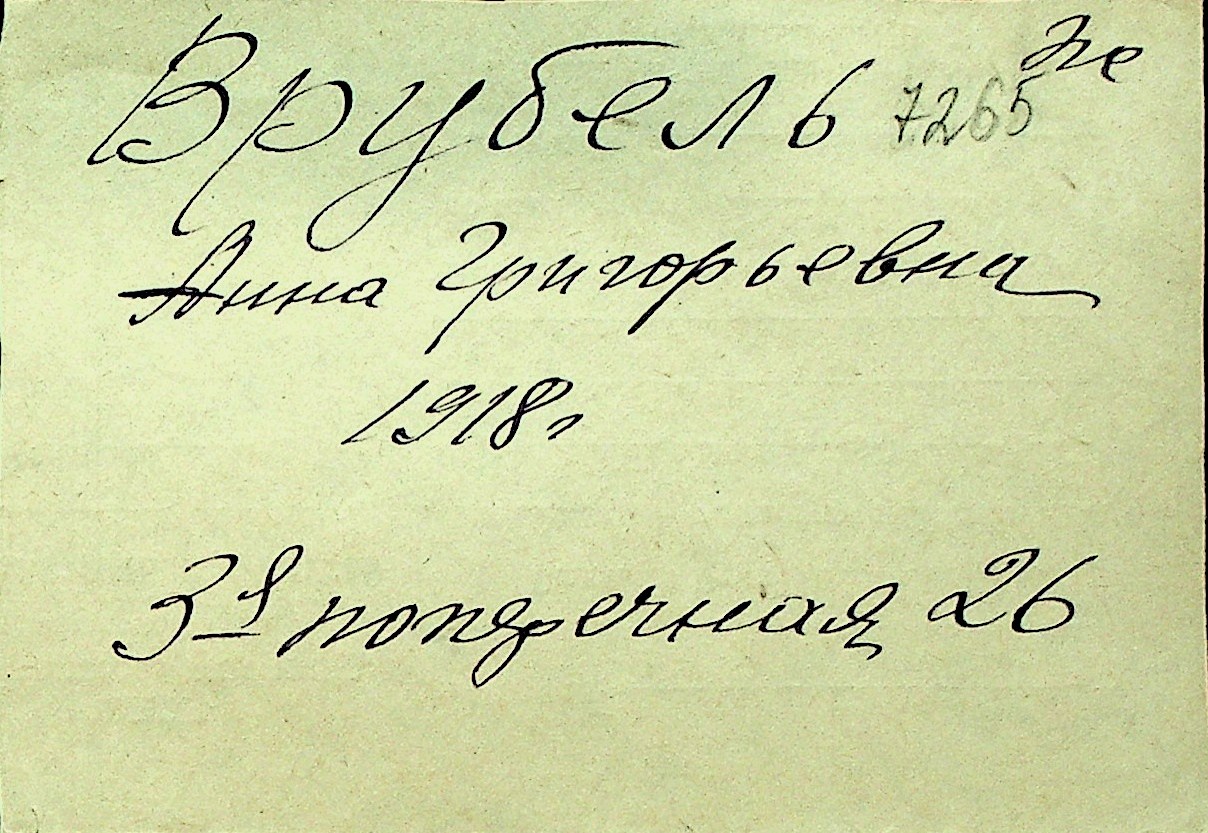 Врубель 7265
Анна Григорьевна
1918г
3я поперечная 26